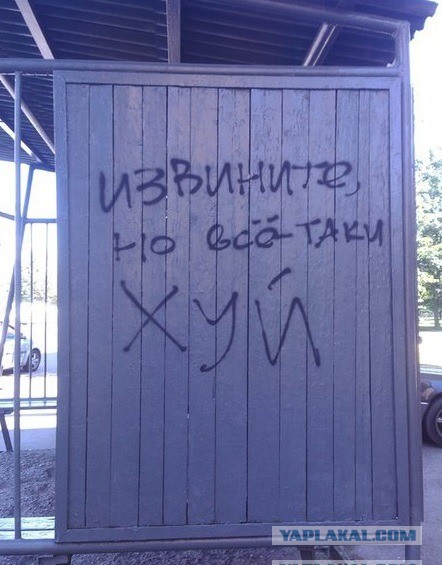 извините,
но всё-таки
хуй
YAPLAKAL.COM